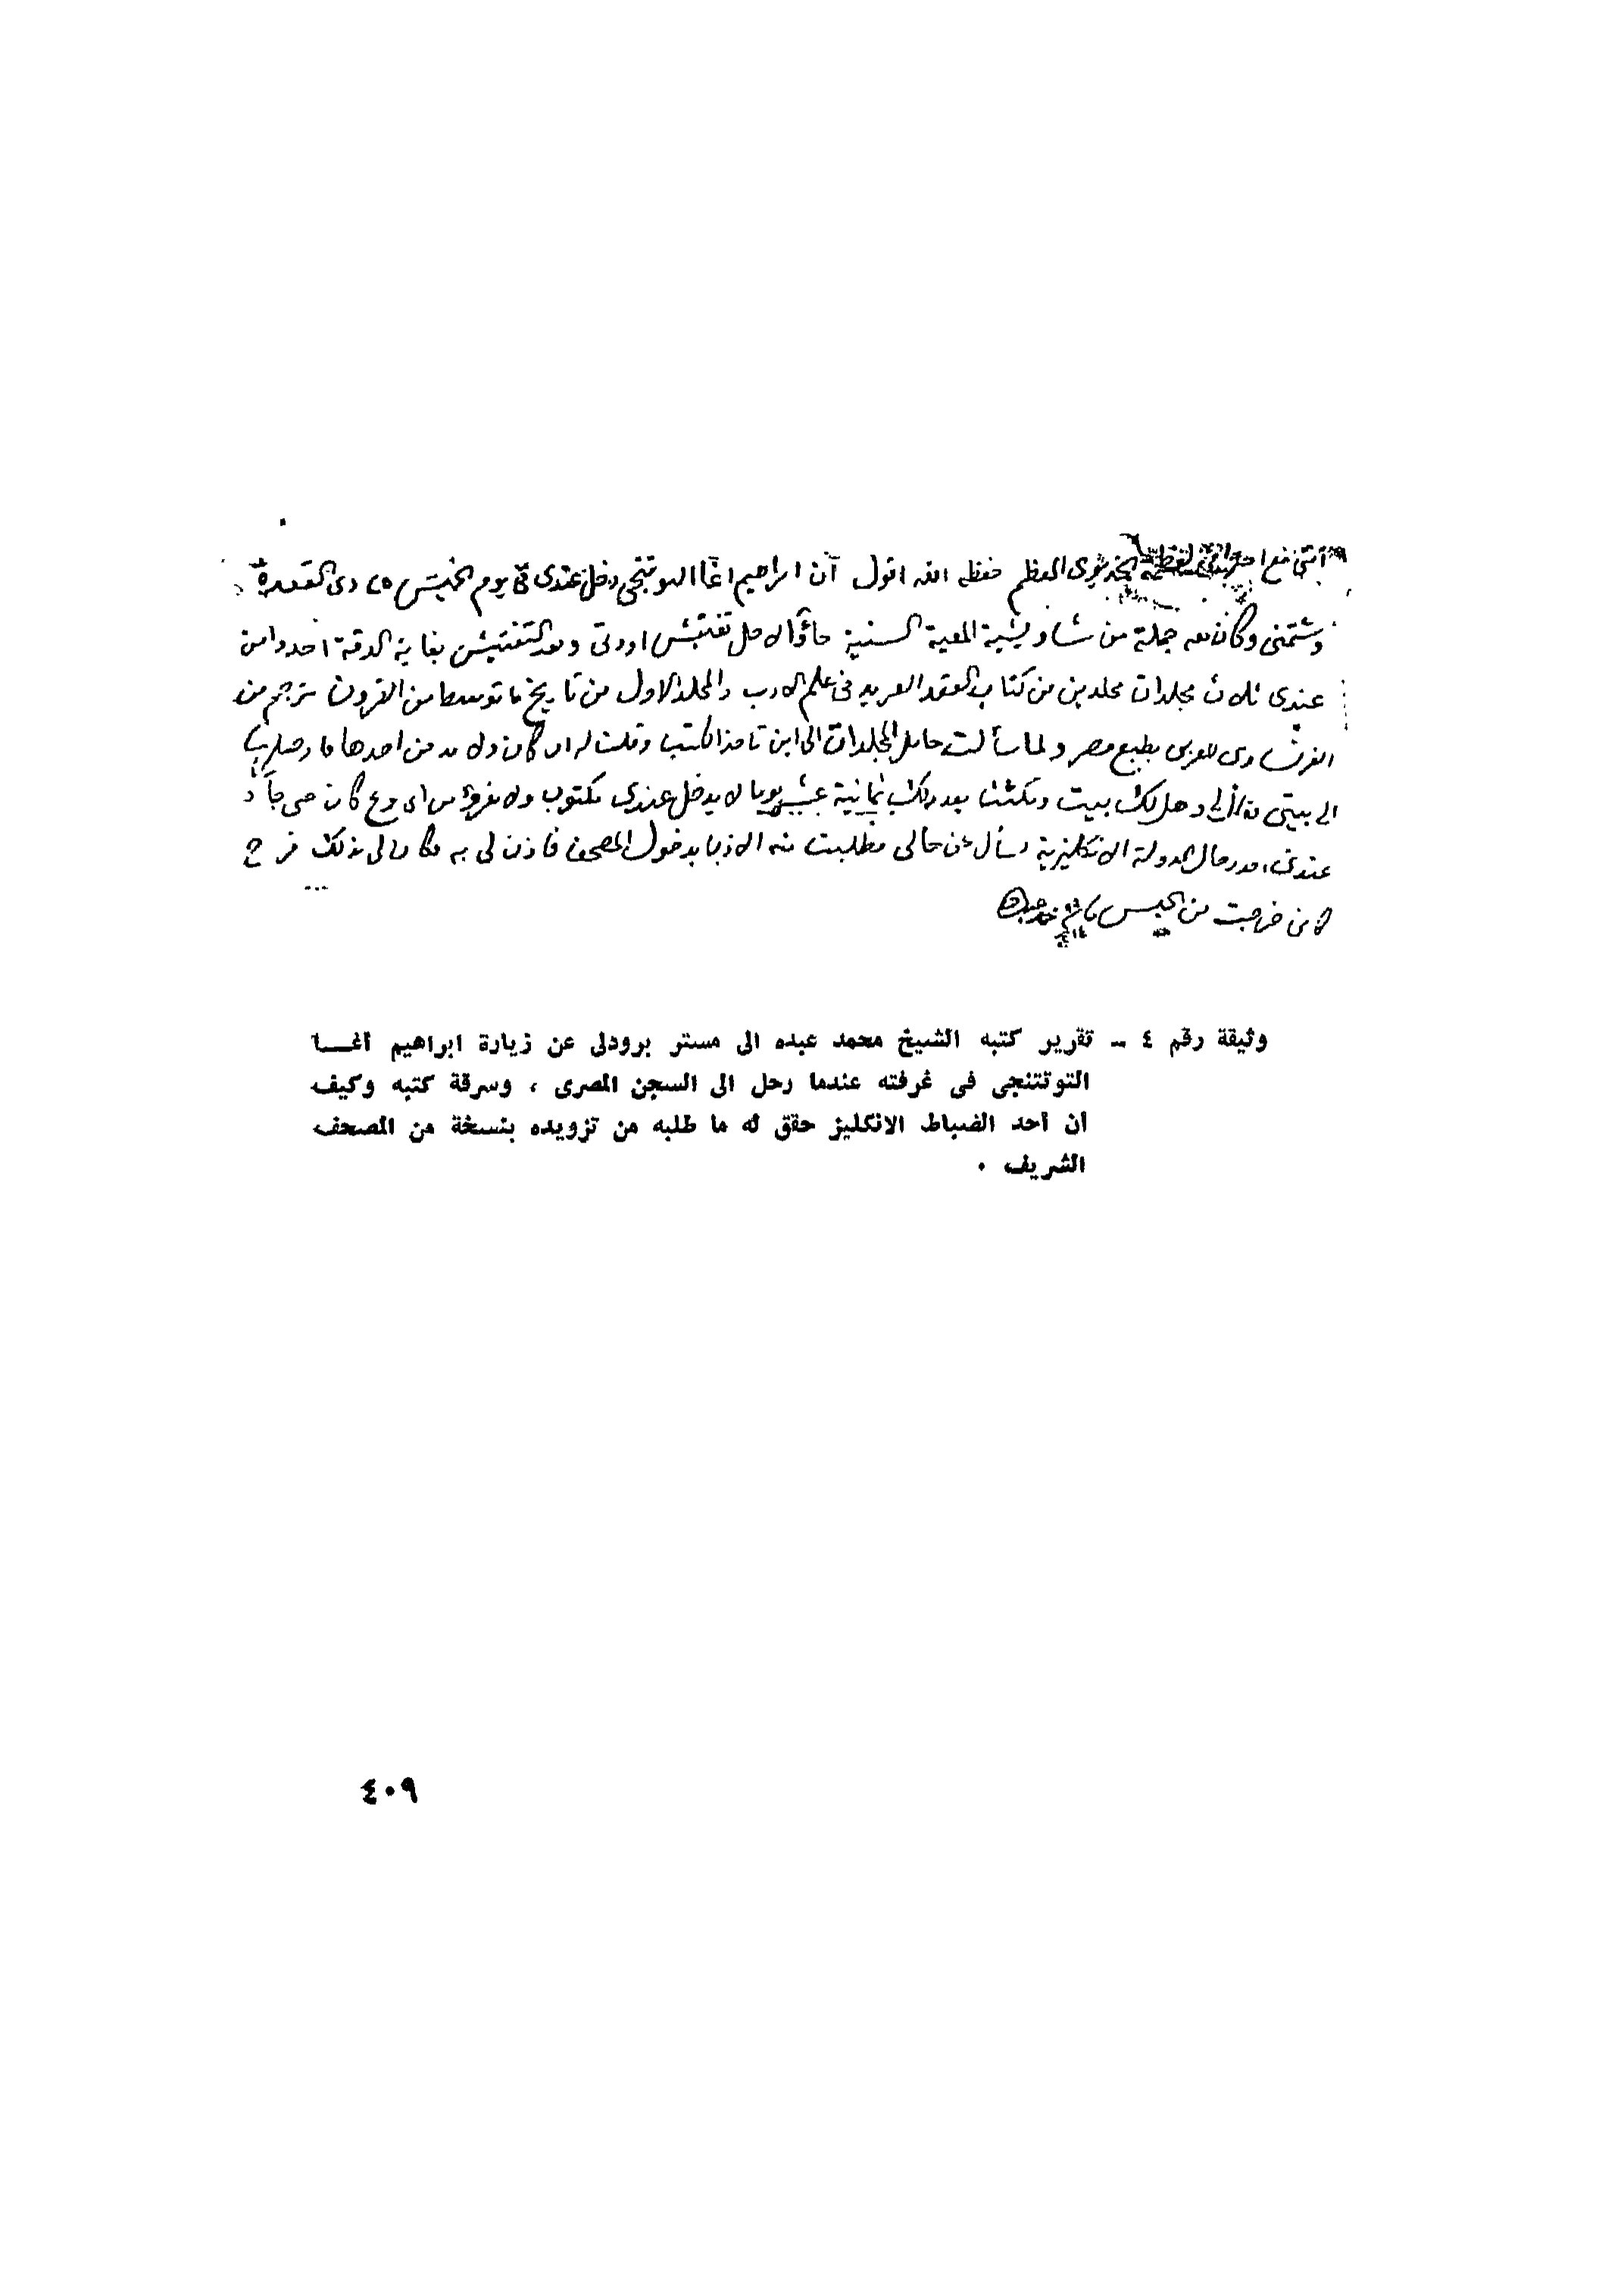 انني مع احترامي لعظمة الخديوى المعظم حفظه الله اقول ان ابراهيم اغا التوتنجى دخل عندى فى يوم الخميس ٢٥ ذى القعدة
وشتمنى وكان معه جملة من شاويشية المعية السنية جاؤا لاجل تفتيش اودتى وبعد التفتيش بغاية الدقة اخذوا من
عندى ثلاث مجلدات مجلدين من كتاب العقد الفريد فى علم الادب والمجلد الاول من تاريخ ما توسط من القرون مترجم من
الفرنساوى للعربى بطبع مصر ولما سألت حامل المجلدات الى اين تأخذ الكتب وقلت له ان كان ولا بد من اخذها فأوصلها
الى بيتى فقال لى وهل لك بيت ومكثت بعد ذلك ثمانية عشر يوما لا يدخل عندى مكتوب ولا مقروء من اى نوع كان حتى جاء
عندى احد رجال الدولة الانكليزية وسأل عن حالى فطلبت منه الاذن بدخول المصحف فاذن لى به فكان لى بذلك فرح
كأنى خرجت من الحبس محمد عبده
وثيقة رقم ٤ - تقرير كتبه الشيخ محمد عبده الى مستر برودلى عن زيارة ابراهيم آغـــا
التوتتنجى فى غرفته عندما رحل الى السجن المصرى ، وسرقة كتبه وكيف
أن أحد الضباط الانكليز حقق له ما طلبه من تزويده بنسخة من المصحف
الشريف .
٤٠٩